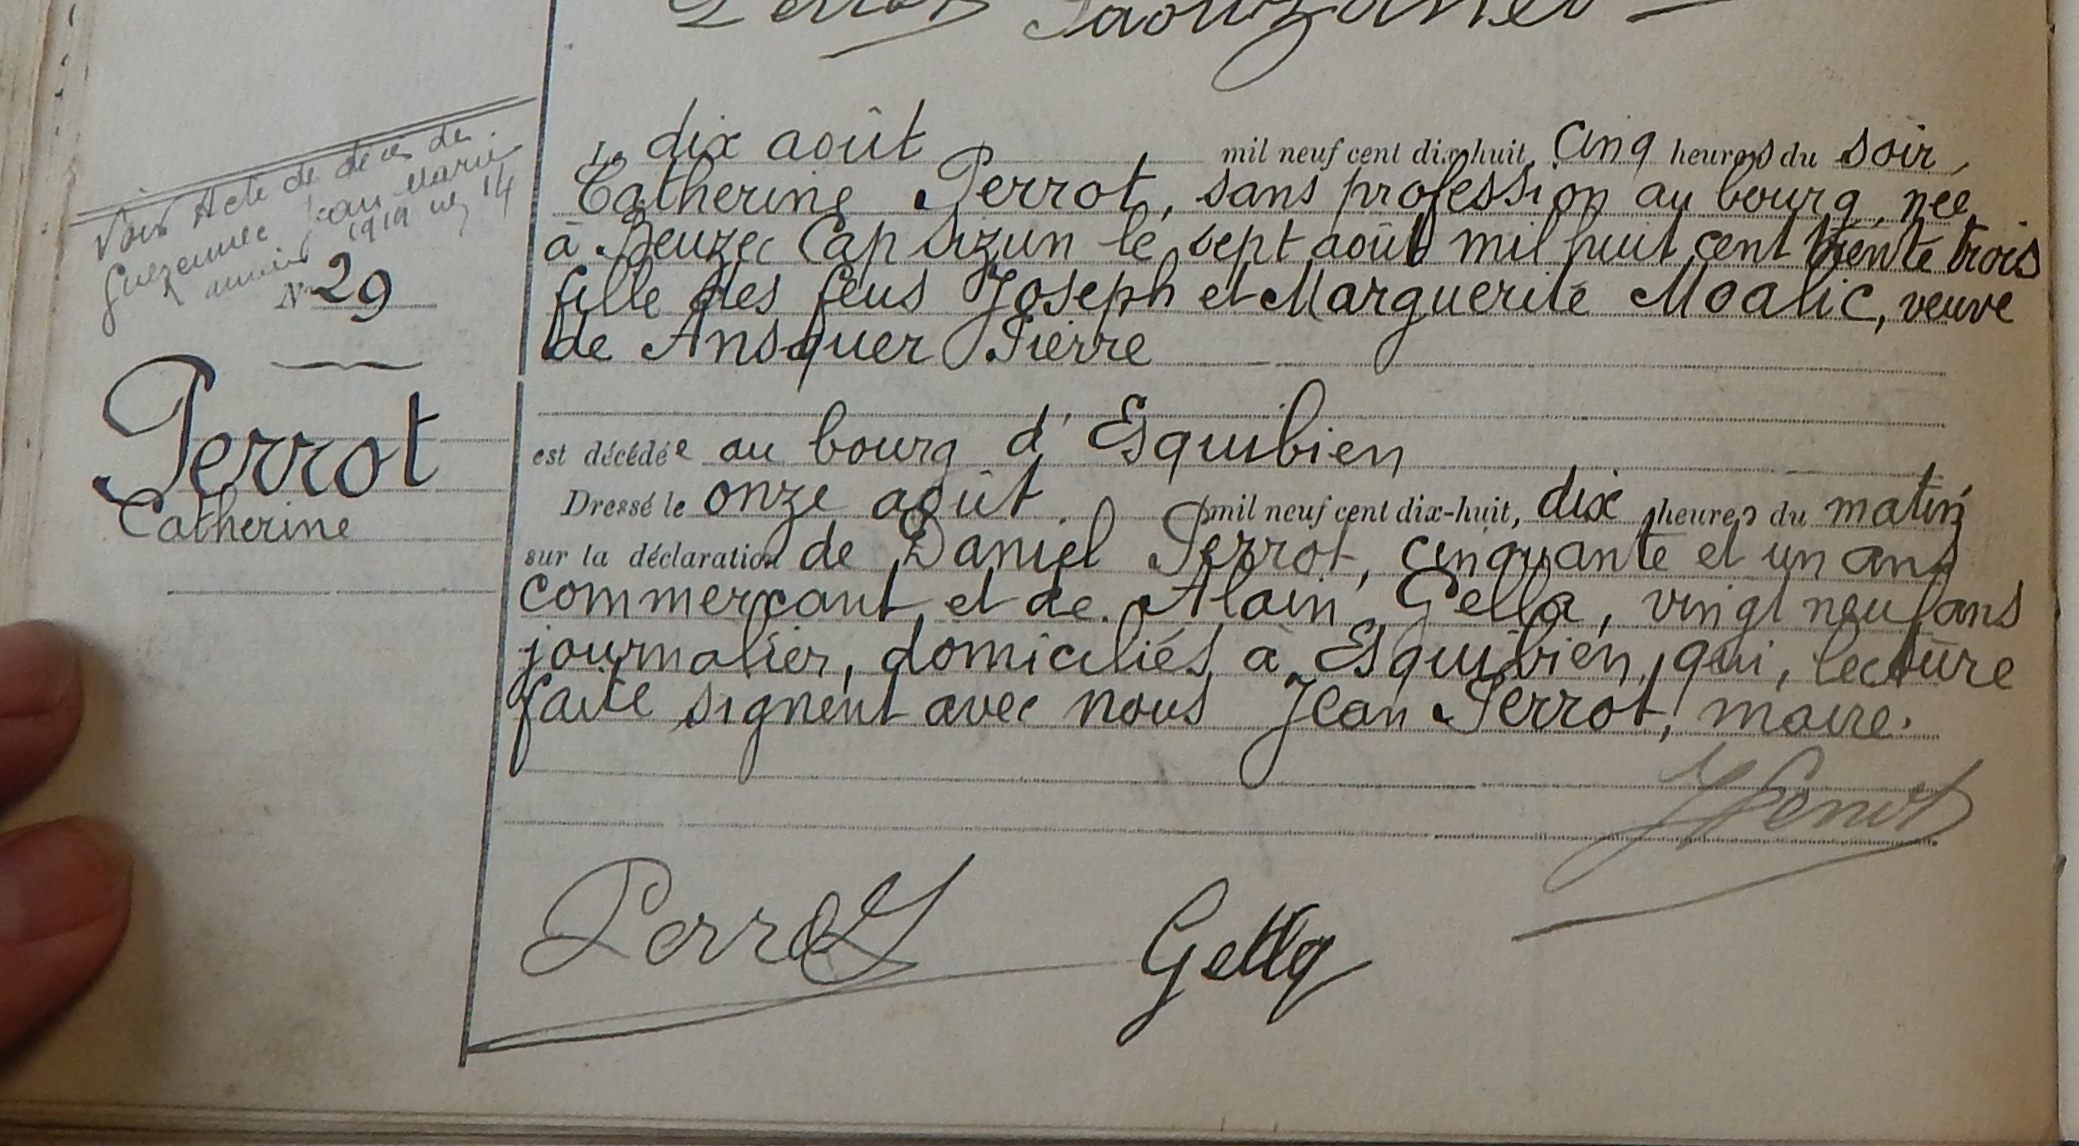 Voir Acte de décès de
Guezennec Jean Marie
année 1919 no 14
No 29
Perrot
Catherine
Le dix août mil neuf cent dix-huit, cinq heures du soir,
Catherine Perrot, sans profession au bourg, née
à Beuzec Cap Sizun le sept août mil huit cent trente trois
fille des feus Joseph et Marguerite Moalic, veuve
de Ansquer Pierre
est décédée au bourg d'Esquibien
Dressé le onze août mil neuf cent dix-huit, dix heures du matin
sur la déclaration de Daniel Perrot, cinquante et un ans
commerçant et de Alain Gella, vingt neuf ans
journalier, domiciliés à Esquibien, qui, lecture
faite signent avec nous Jean Perrot, maire.
Perrot Gella